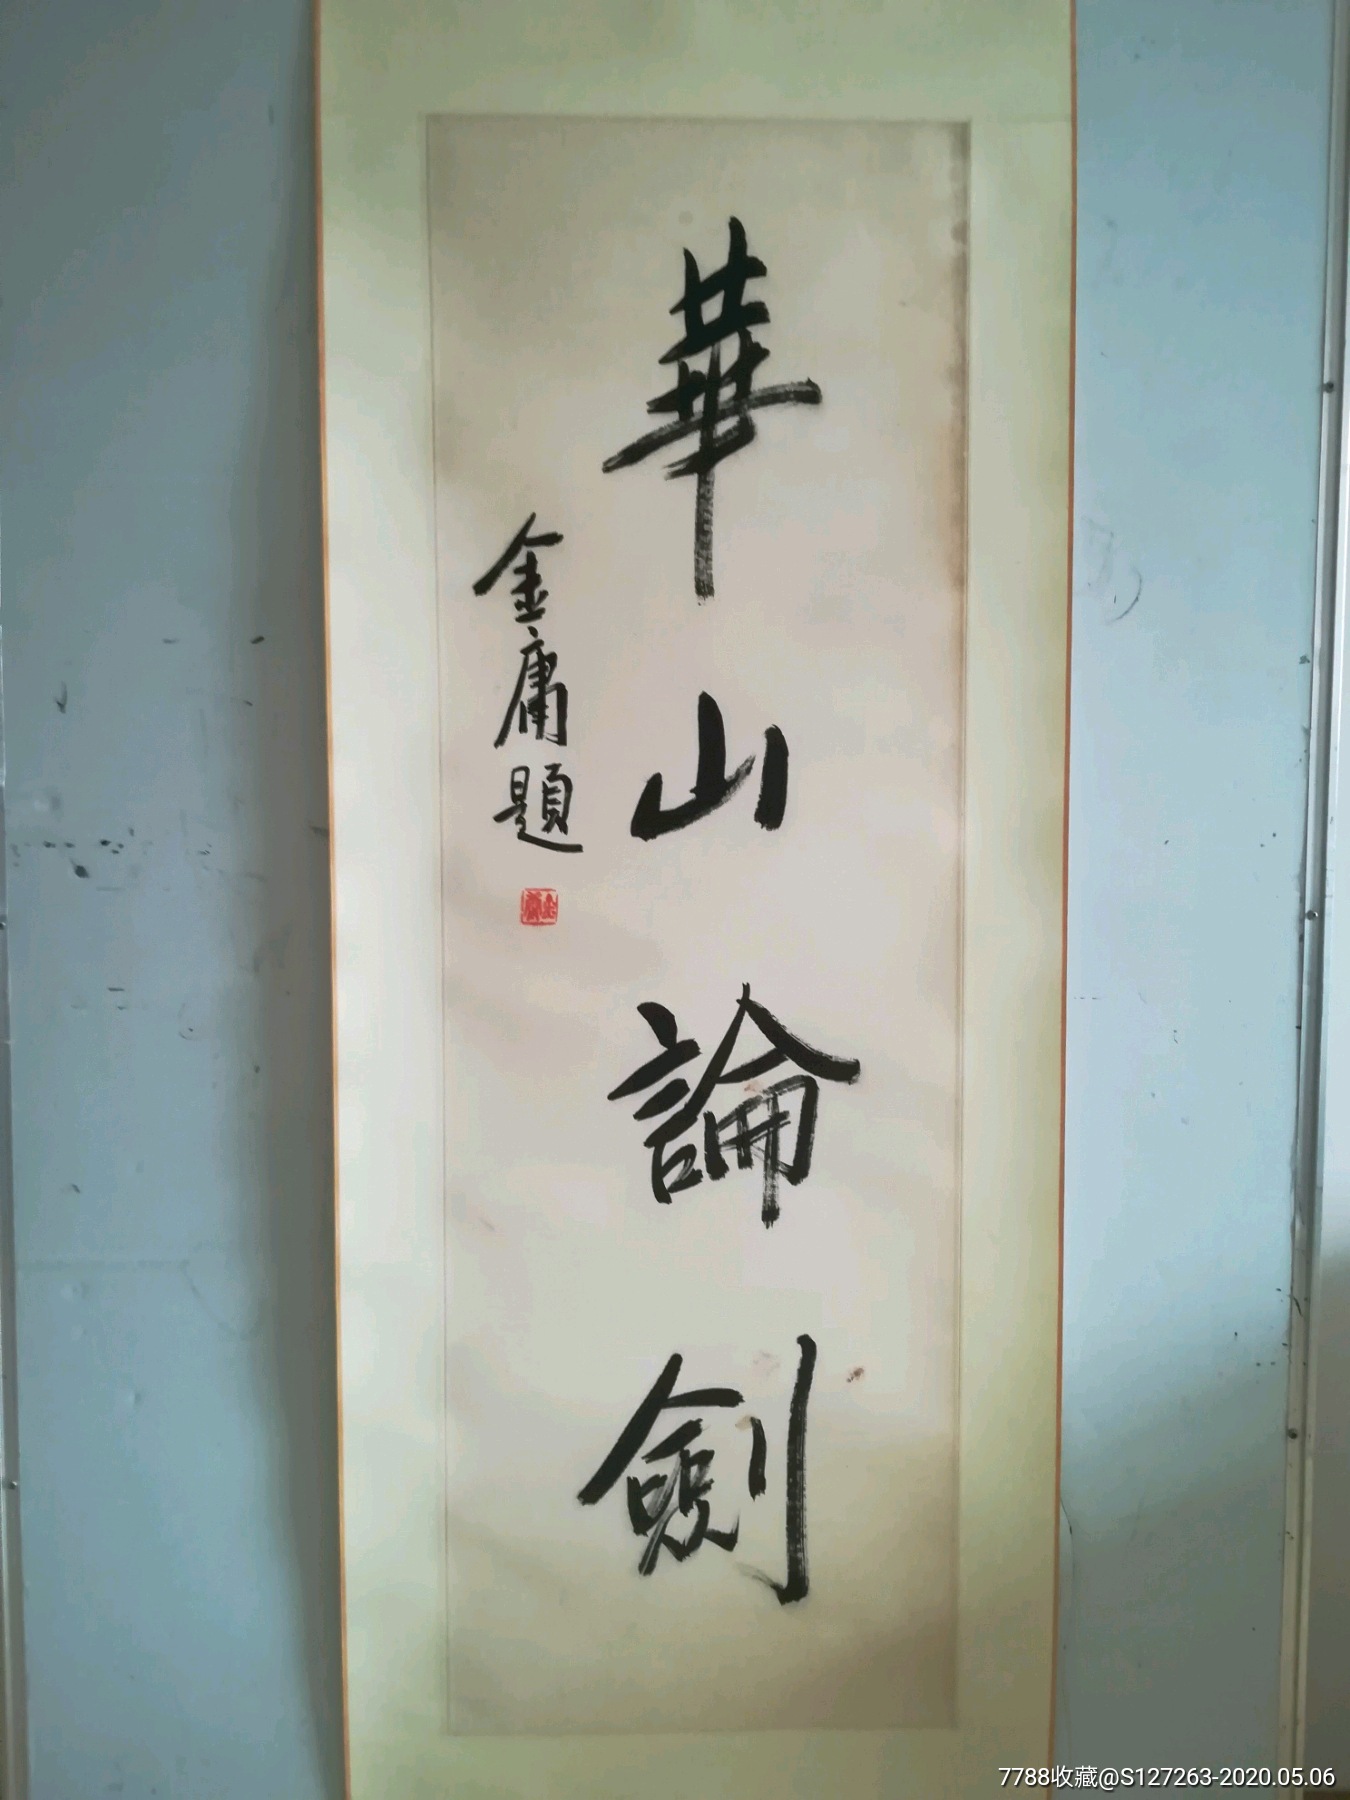 華山論劍
金庸題
金庸
7788收藏@S127263-2020.05.06